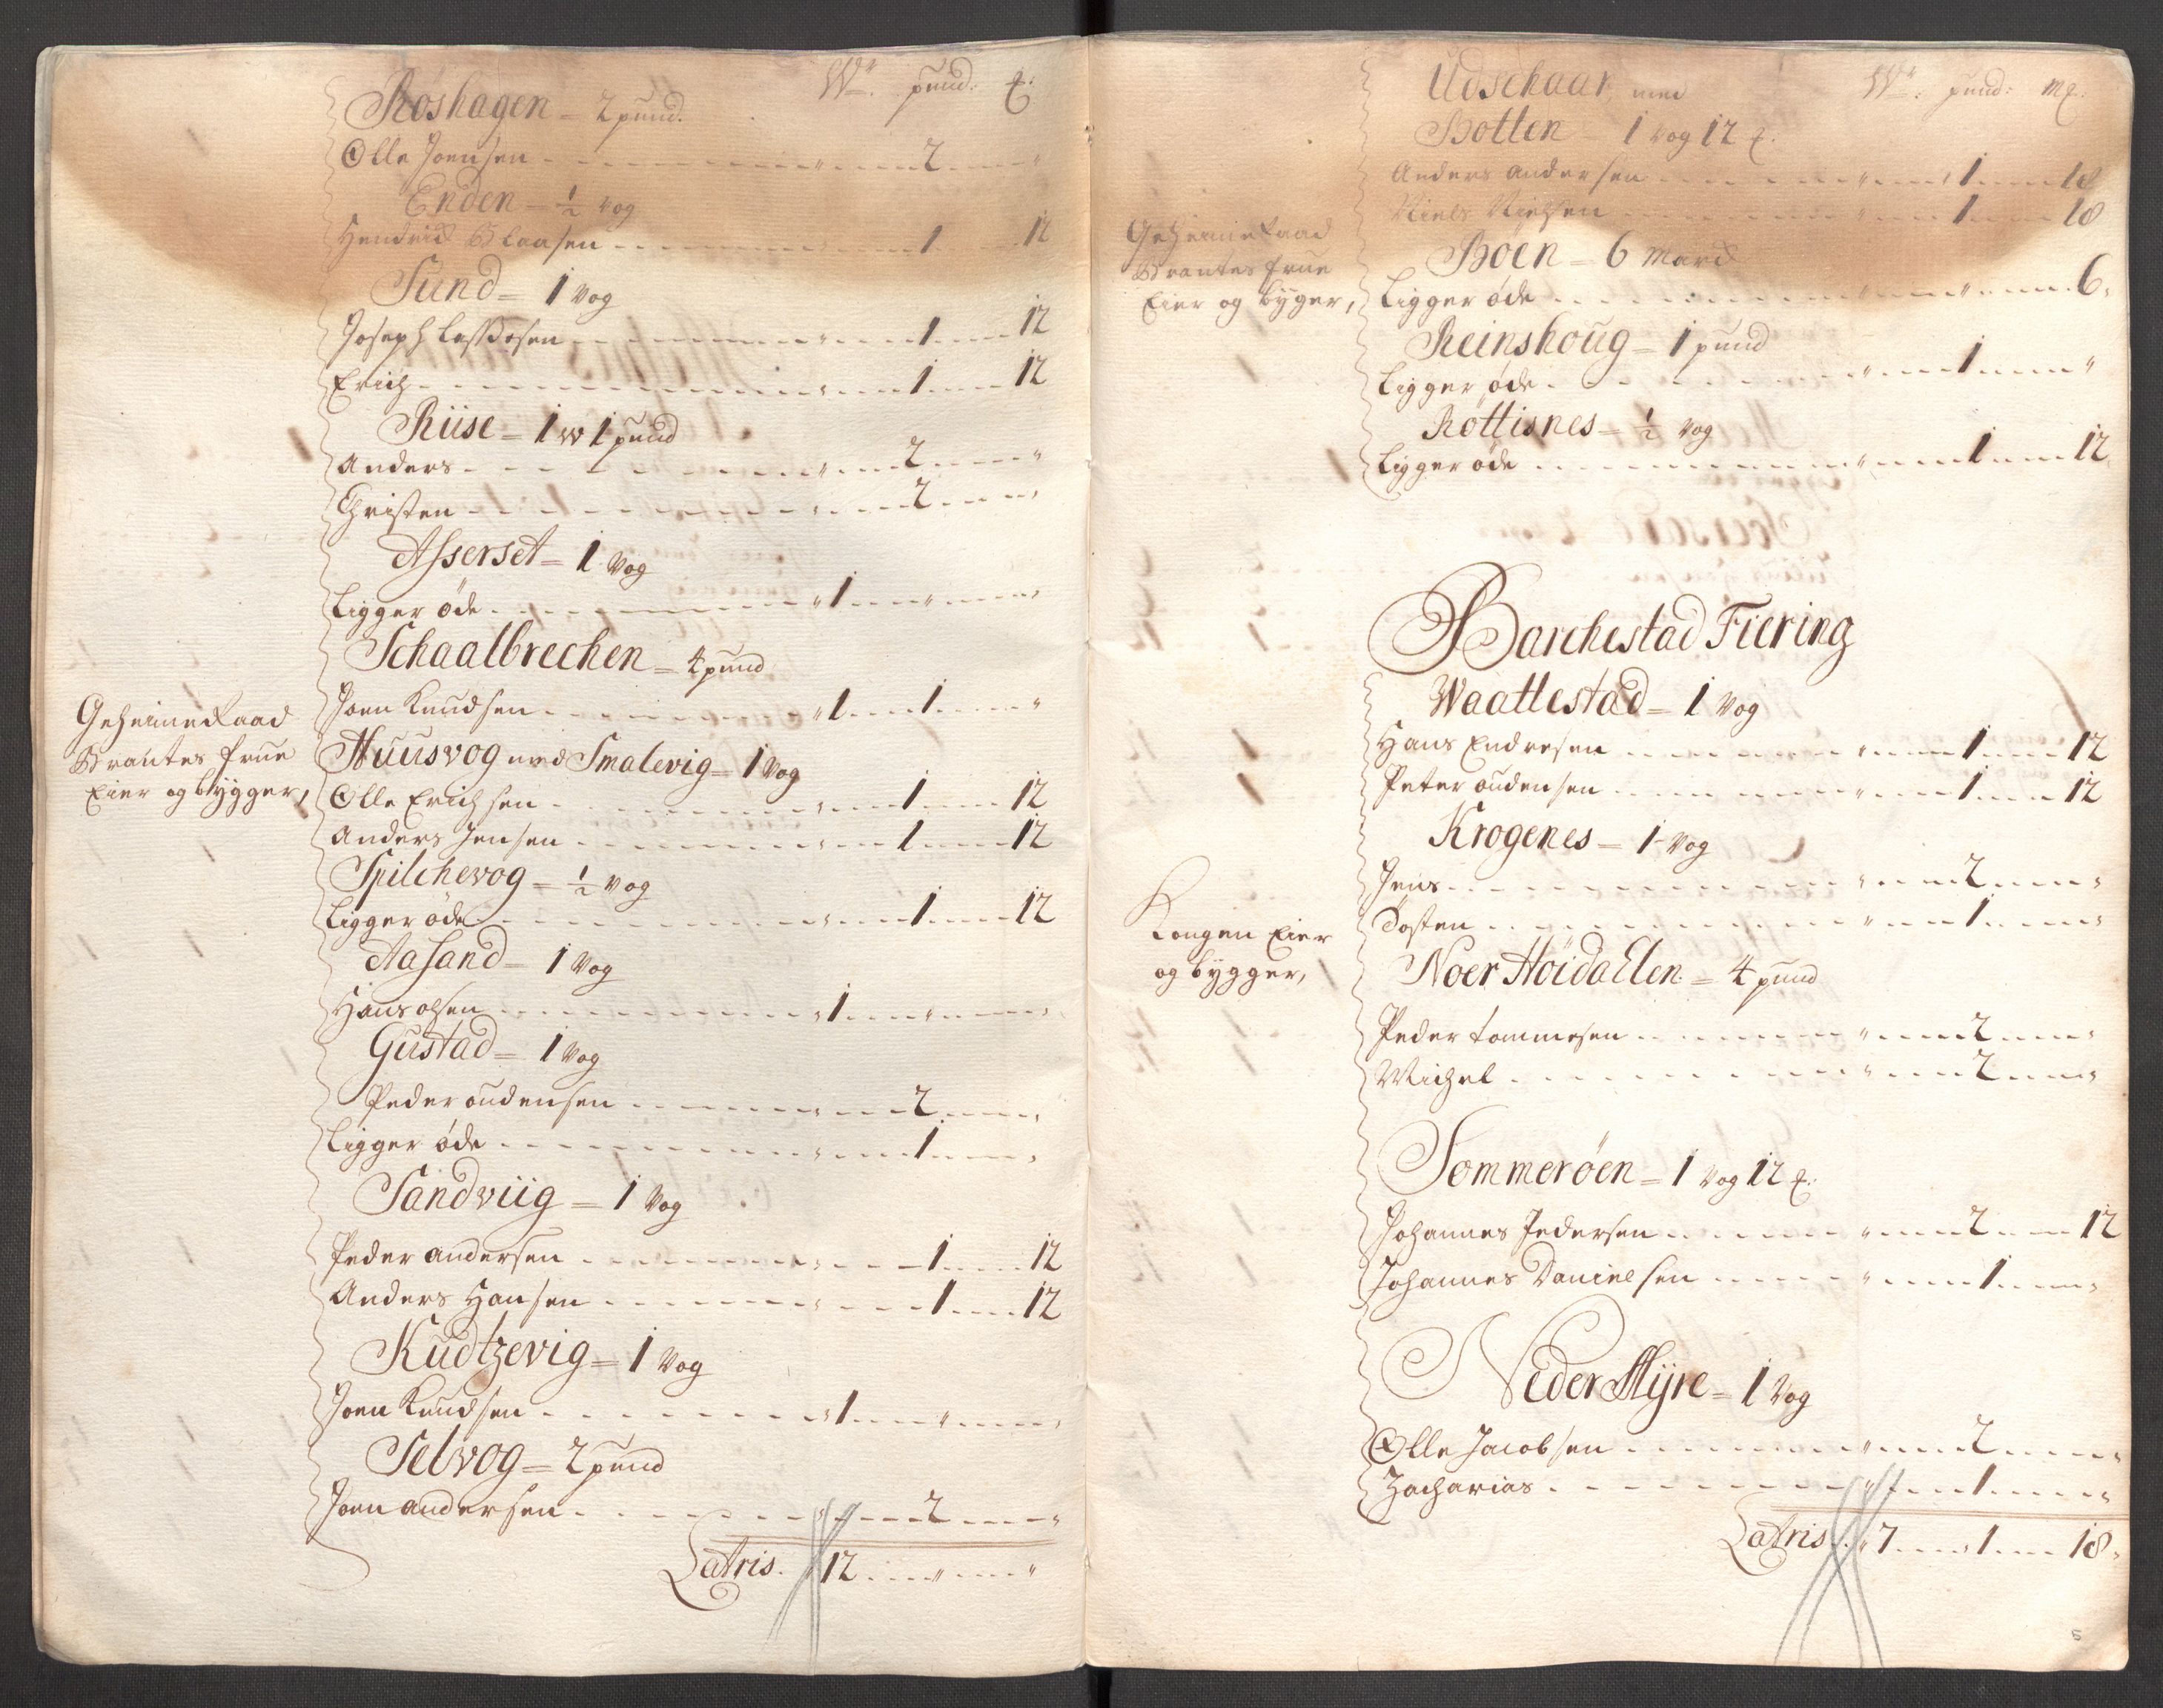 Wr. pund: ℔:
Röshagen = 2 pund.
Olle Joensen 2
Enden = ½ vog
Hendrick Claasen 1 12
Sund = 1 Vog
Joseph 1 12
Erich 1 12
Riise = 1 w 1 pund
Anders 2
Christen 2
Asserset = 1 Vog
Ligger öde 1
Schaalbrechen = 4 pund
Joen Knudsen 1 1
Geheimeraad
Brantes frue
Eier og bygger,
Huusvog med Smalevig = 1 Vog
Olle Erichsen 1 12
Anders Jensen 1 12
Spilchevog = ½ vog
Ligger öde 1 12
Aasand = 1 Vog
Hans olsen 1
Gustad = 1 Vog
Peder oudensen 2
Ligger öde 1
Sandviig = 1 Vog
Peder andersen 1 12
Anders Hansen 1 12
Kudtzevig = 1 Vog
Joen Knudsen 1
Selvog = 2 pund
Joen andersen 2
Latris. 12
Wr: pund: M℔:
Udschaar med
Botten = 1 vog 12 ℔.
Anders andersen 1 18
Niels Nielsen 1 18
Geheimeraad
Brantes frue
Eier og byger,
Böen = 6 Marck
Ligger öde 6
Reinshoug = 1 pund
Ligger öde 1
Rottisnes = ½ vog
Ligger öde 1 12
Barchestad Fiering
Waattestad = 1 Vog
Hans Endresen 1 12
Peter oudensen 1 12
Krogenes = 1 Vog
Jens 2
Tosten 1
Kongen Eier
og bygger,
Noer Höidallen = 4 pund
Peder tommesen 2
Michel 2
Sommeröen = 1 Vog 12 ℔:
Johannes Pedersen 2 12
Johannes Danielsen 1
Neder Myre = 1 Vog
Olle Jacobsen 2
Zacharias 1
Latris. 7 1 18
5